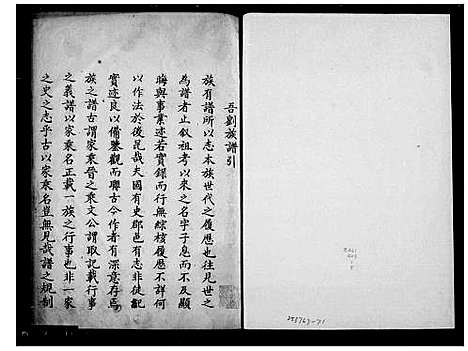 吾劉族譜引
族有譜所以志本族世代之履歷也往見世之
為譜者止叙祖考以來之名字子息而不及顯
晦與事業迹若實録而行無綜核履歷不詳何
以作法於後昆哉夫國有史郡邑有志非徒紀
實迹良以備鑒觀而聯古今作者有深意存焉
族之譜古謂家乘晉之乘文公謂取記載行事
之義譜以家乘名正載一族之行事也非一家
之史之志乎古以家乘名豈無見哉譜之規制
253763-71